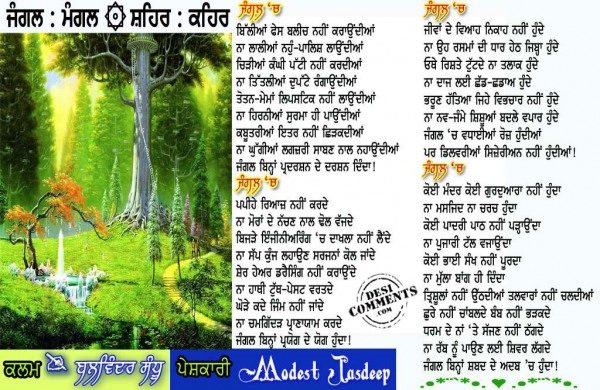 ਜੰਗਲ : ਮੰਗਲ ۞ ਸ਼ਹਿਰ : ਕਹਿਰ
ਜੰਗਲ 'ਚ
ਬਿੱਲੀਆਂ ਫੇਸ ਬਲੀਚ ਨਹੀਂ ਕਰਾਉਂਦੀਆਂ
ਨਾ ਲਾਲੀਆਂ ਨਹੁੰ-ਪਾਲਿਸ਼ ਲਾਉਂਦੀਆਂ
ਚਿੜੀਆਂ ਕੰਘੀ ਪੱਟੀ ਨਹੀਂ ਕਰਦੀਆਂ
ਨਾ ਤਿੱਤਲੀਆਂ ਦੁਪੱਟੇ ਰੰਗਾਉਂਦੀਆਂ
ਤੋਤਨ-ਮੇਮਾਂ ਲਿਪਸਟਿਕ ਨਹੀਂ ਲਾਉਂਦੀਆਂ
ਨਾ ਹਿਰਨੀਆਂ ਸੁਰਮਾ ਹੀ ਪਾਉਂਦੀਆਂ
ਕਬੂਤਰੀਆਂ ਇਤਰ ਨਹੀਂ ਛਿੜਕਦੀਆਂ
ਨਾ ਘੁੱਗੀਆਂ ਲਗਜ਼ਰੀ ਸਾਬਣ ਨਾਲ ਨਹਾਉਂਦੀਆਂ
ਜੰਗਲ ਬਿਨਾਂ ਪ੍ਰਦਰਸ਼ਨ ਦੇ ਦਰਸ਼ਨ ਦਿੰਦਾ!
ਜੰਗਲ 'ਚ
ਪਪੀਹੇ ਰਿਆਜ਼ ਨਹੀਂ ਕਰਦੇ
ਨਾ ਮੋਰਾਂ ਦੇ ਨੱਚਣ ਨਾਲ ਢੋਲ ਵੱਜਦੇ
ਬਿਜੜੇ ਇੰਜੀਨੀਅਰਿੰਗ 'ਚ ਦਾਖਲਾ ਨਹੀਂ ਲੈਂਦੇ
ਨਾ ਸੱਪ ਕੁੰਜ ਲਹਾਉਣ ਸਰਜਨਾਂ ਕੋਲ ਜਾਂਦੇ
ਸ਼ੇਰ ਹੇਅਰ ਡਰੈਸਿੰਗ ਨਹੀਂ ਕਰਾਉਂਦੇ
ਨਾ ਹਾਥੀ ਟੁੱਥ-ਪੇਸਟ ਵਰਤਦੇ
ਘੋੜੇ ਕਦੇ ਜਿੰਮ ਨਹੀਂ ਜਾਂਦੇ
ਨਾ ਚਮਗਿੱਦੜ ਪ੍ਰਾਣਾਯਾਮ ਕਰਦੇ
ਜੰਗਲ ਬਿਨਾਂ ਪ੍ਰਯੋਗ ਦੇ ਯੋਗ ਹੁੰਦਾ!
ਜੰਗਲ 'ਚ
ਜੀਵਾਂ ਦੇ ਵਿਆਹ ਨਿਕਾਹ ਨਹੀਂ ਹੁੰਦੇ
ਨਾ ਉਹ ਰਸਮਾਂ ਦੀ ਧਾਰ ਹੇਠ ਜਿਬ੍ਹਾ ਹੁੰਦੇ
ਓਥੇ ਰਿਸ਼ਤੇ ਟੁੱਟਦੇ ਨਾ ਤਲਾਕ ਹੁੰਦੇ
ਨਾ ਦਾਜ ਲਈ ਛੱਡ-ਛਡਾਅ ਹੁੰਦੇ
ਭਰੂਣ ਹੱਤਿਆ ਜਿਹੇ ਵਿਭਚਾਰ ਨਹੀਂ ਹੁੰਦੇ
ਨਾ ਨਵ-ਜੰਮੇ ਸ਼ਿਸ਼ੂਆਂ ਬਦਲੇ ਵਪਾਰ ਹੁੰਦੇ
ਜੰਗਲ 'ਚ ਵਧਾਈਆਂ ਰੋਜ਼ ਹੁੰਦੀਆਂ
ਪਰ ਡਿਲਵਰੀਆਂ ਸਿਜ਼ੇਰੀਅਨ ਨਹੀਂ ਹੁੰਦੀਆਂ!
ਜੰਗਲ 'ਚ
ਕੋਈ ਮੰਦਰ ਕੋਈ ਗੁਰਦੁਆਰਾ ਨਹੀਂ ਹੁੰਦਾ
ਨਾ ਮਸਜਿਦ ਨਾ ਚਰਚ ਹੁੰਦਾ
ਕੋਈ ਪਾਦਰੀ ਪਾਠ ਨਹੀਂ ਪੜ੍ਹਾਉਂਦਾ
ਨਾ ਪੁਜਾਰੀ ਟੱਲ ਵਜਾਉਂਦਾ
ਕੋਈ ਭਾਈ ਸੰਖ ਨਹੀਂ ਪੂਰਦਾ
ਨਾ ਮੁੱਲਾ ਬਾਂਗ ਹੀ ਦਿੰਦਾ
ਤ੍ਰਿਸ਼ੂਲਾਂ ਨਹੀਂ ਉਠਦੀਆਂ ਤਲਵਾਰਾਂ ਨਹੀਂ ਚਲਦੀਆਂ
ਛੁਰੇ ਨਹੀਂ ਚਾਂਬਲਦੇ ਬੰਬ ਨਹੀਂ ਭੜਕਦੇ
ਧਰਮ ਦੇ ਨਾਂ 'ਤੇ ਸੱਜਣ ਨਹੀਂ ਠੱਗਦੇ
ਨਾ ਰੱਬ ਨੂੰ ਪਾਉਣ ਲਈ ਸ਼ਿਵਰ ਲੱਗਦੇ
ਜੰਗਲ ਬਿਨਾਂ ਸ਼ਬਦ ਦੇ ਅਦਬ 'ਚ ਹੁੰਦਾ!
DESI
COMMENTS
.COM
ਕਲਮ ✍ ਬਲਵਿੰਦਰ ਸੰਧੂ ਪੇਸ਼ਕਾਰੀ Modest Jasdeep